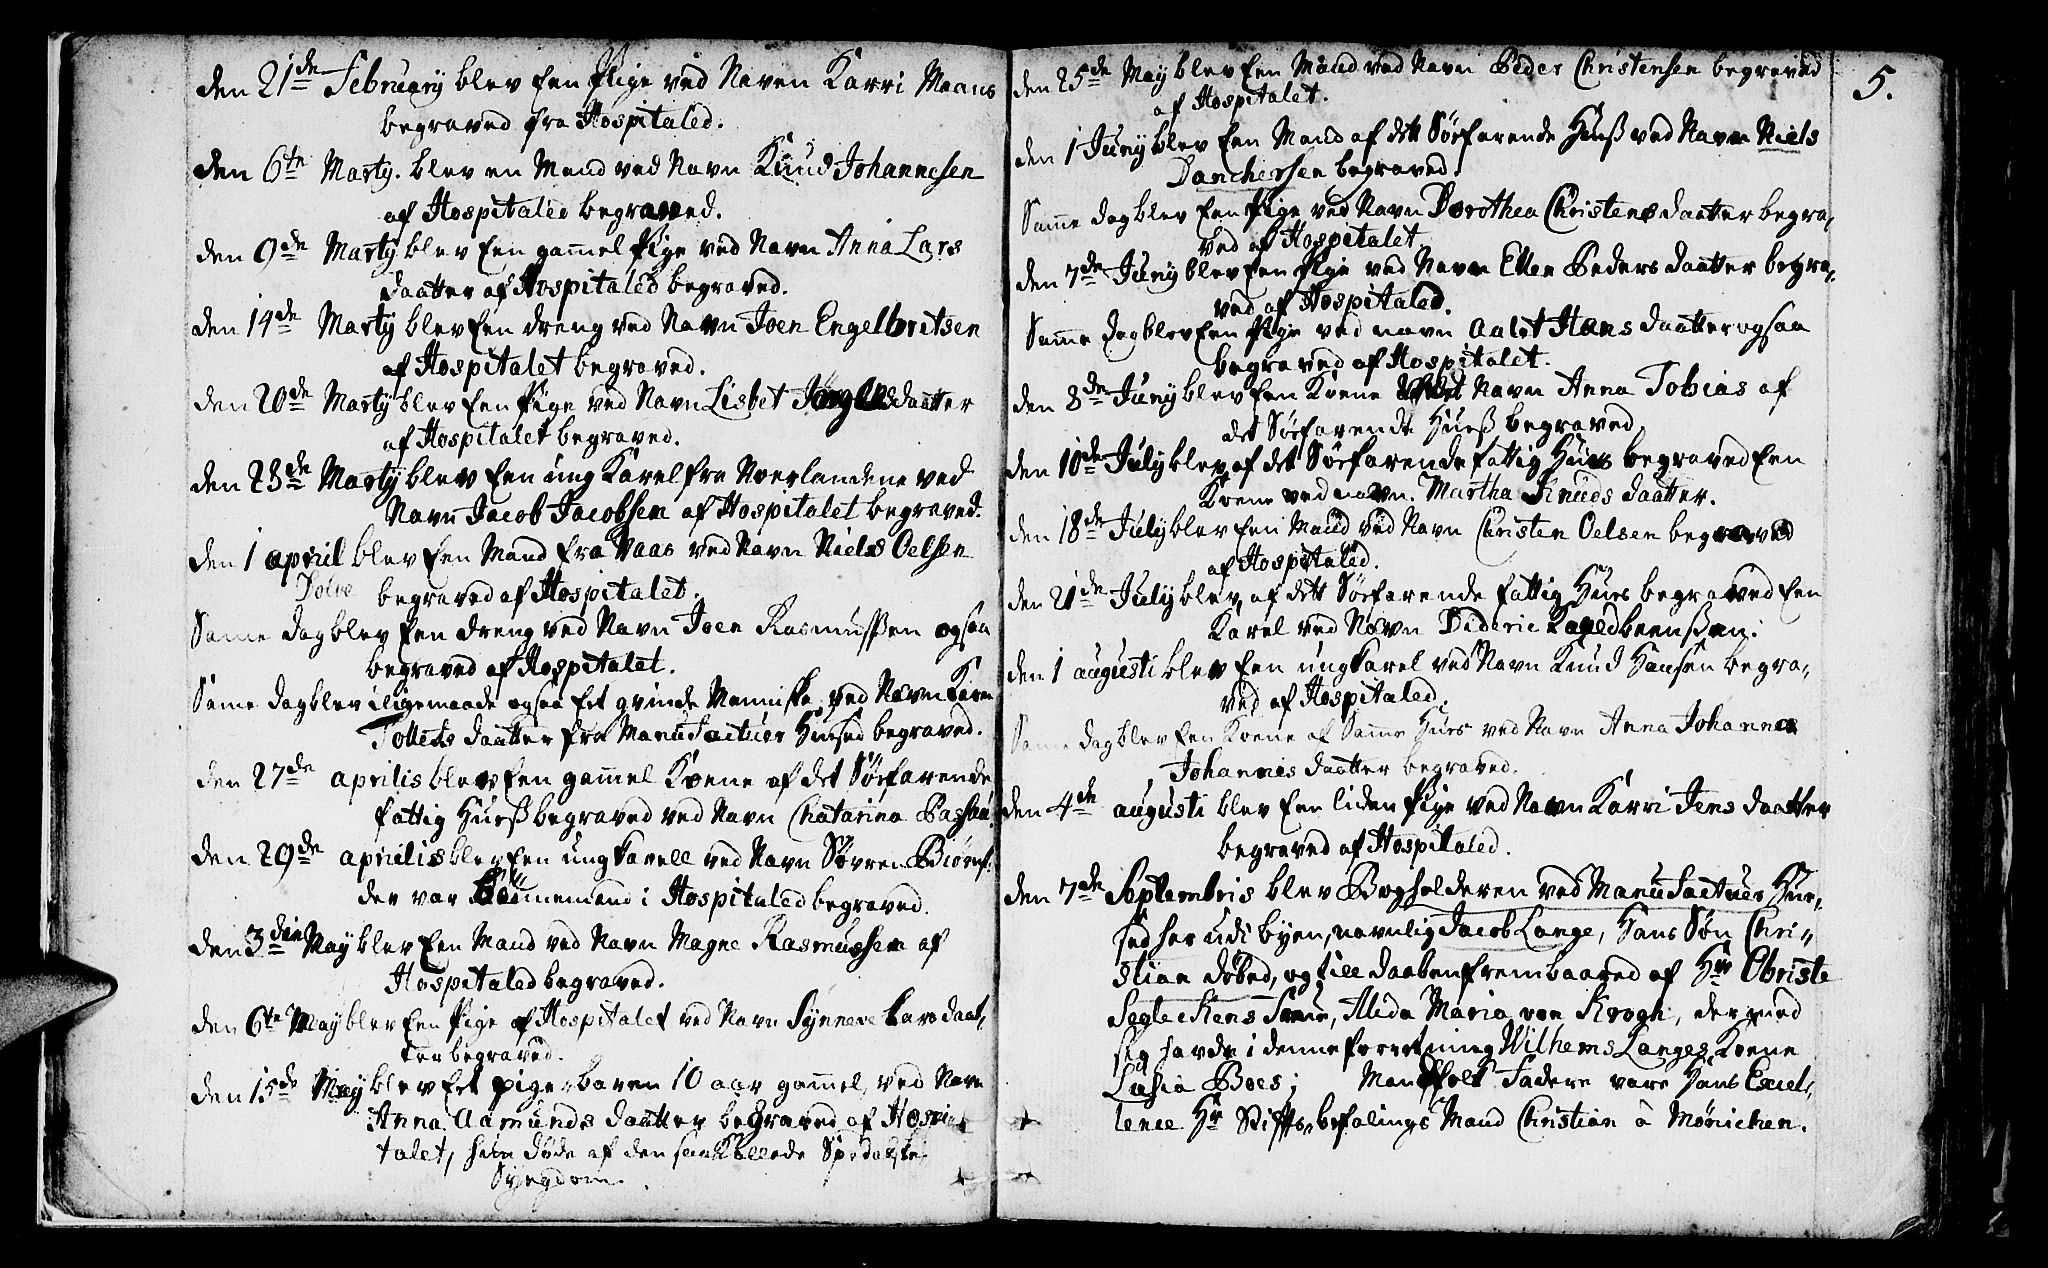 den 21de February blev Een Pige ved Naven Karri Maans
begraved fra Hospitaled.
den 6te Marty. blev en Mand ved Navn Knud Johannesen
af Hospitaled begraved.
den 9de Marty blev Een gam̅el Pige ved Navn Anna Lars
daatter af Hospitaled begraved.
den 14de Marty blev Een dreng ved Navn Joen Engelbritsen
af Hospitalet begraved.
den 20de Marty blev Een Pige ved Navn Lisbet daatter
af Hospitalet begraved.
den 23de Marty blev Een ung Karel fra Noerlandene ved
Navn Jacob Jacobsen af Hospitalet begraved.
den 1 april blev Een Mand fra Vaas ved Navn Niels Oelsen
Dolve begraved af Hospitalet.
Sam̅e dag blev Een dreng ved Navn Joen Rasmussen ogsaa
begraved af Hospitalet.
Sam̅e dag blev iligemaade ogsaa Eet qvinde Menniske ved Navn Karen
Tollefs daatter fra Manufactuer Huused begraved.
den 27de aprilis blev Een gam̅el Koene af det Søefarende
fattig Huuß begraved ved Navn Chatarina
den 29de aprilis blev Een ung Karell ved Navn Søvren Biørns:
der var i Hospitaled begraved.
den 3die May blev Een Mand ved Navn Magne Rasmussen af
Hospitaled begraved.
den 6te May blev Een Pige af Hospitalet ved Navn Synneve Lars daat,
ter begraved.
den 15de May blev Eet pige-baren 10 aar gam̅el, ved Navn
Anna Aamunds daatter begraved af Hospi-
talet, hun døde af den saa Kallede Spedalske
Sygdom.
den 25de May blev Een Mand ved Navn Peder Christensen begraved
af Hospitalet.
5.
den 1 Juny blev Een Mand af dett Søefarende Huuß ved Navn Niels
Danchersen begraved.
Sam̅e dag blev Een Pige ved Navn Dorothea Christens daatter begra,
ved af Hospitalet.
den 7de Juny blev Een Pige ved Navn Ellen Peders daatter begra,
ved af Hospitaled.
Sam̅e dag blev Een Pige ved navn Aalet Hans daatter ogsaa
begraved af Hospitalet.
den 8de Juny blev Een Koene Navn Anna Tobias af
det Søefarende Huuß begraved.
den 10de July blev af det Søefarende fattig Huus begraved Een
Koene ved navn. Martha Knuds daatter.
den 18de July blev Een Mand ved Navn Christen Oelsen begraved
af Hospitaled.
den 21de July blev af dett Søefarende fattig Huus begraved Een
Karel ved Navn Dideric
den 1 augusti blev Een ung karel ved Navn Knud Hansen begra,
ved af Hospitaled.
Sam̅e dag blev Een Koene af Sam̅e Huus ved Navn Anna Johanna
Johannis daatter begraved.
den 4de augusti blev Een liden Pige ved Navn Karri Jens daatter
begraved af Hospitaled.
den 7de Septembris blev Bogholderen ved Manufactuer Huu,
sed her udi byen, navnlig Jacob Lange, Hans Søn Chri-
stian døbed, og till daaben frembaared af Hr Obriste
Segleckens Frue, Alida Maria von Krogh, der med
sig havde i denne forretning Wilhems Langes Koene
Boes; Mandfolk Fadere vare Hans Excel,
lence Hr Stifts-befalings Mand Christian à Mønichen.